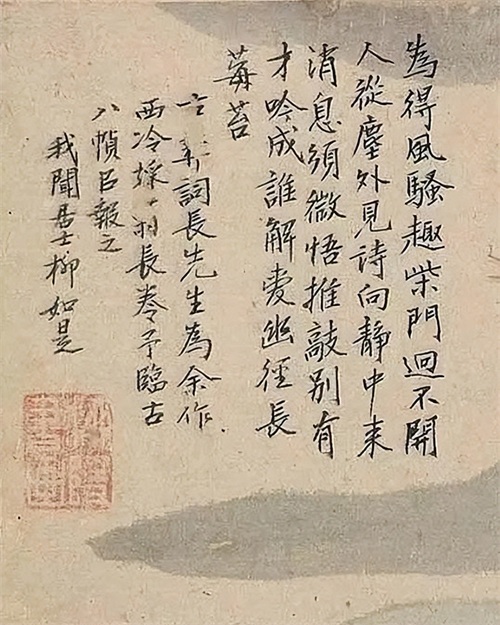 為得風騷趣柴門迴不開
人從塵外見詩向靜中来
消息須微悟推敲別有
才吟成誰解愛幽徑長
莓苔
詞長先生為余作
西冷採長卷予臨古
八幀㠯報之
我聞居士柳如是